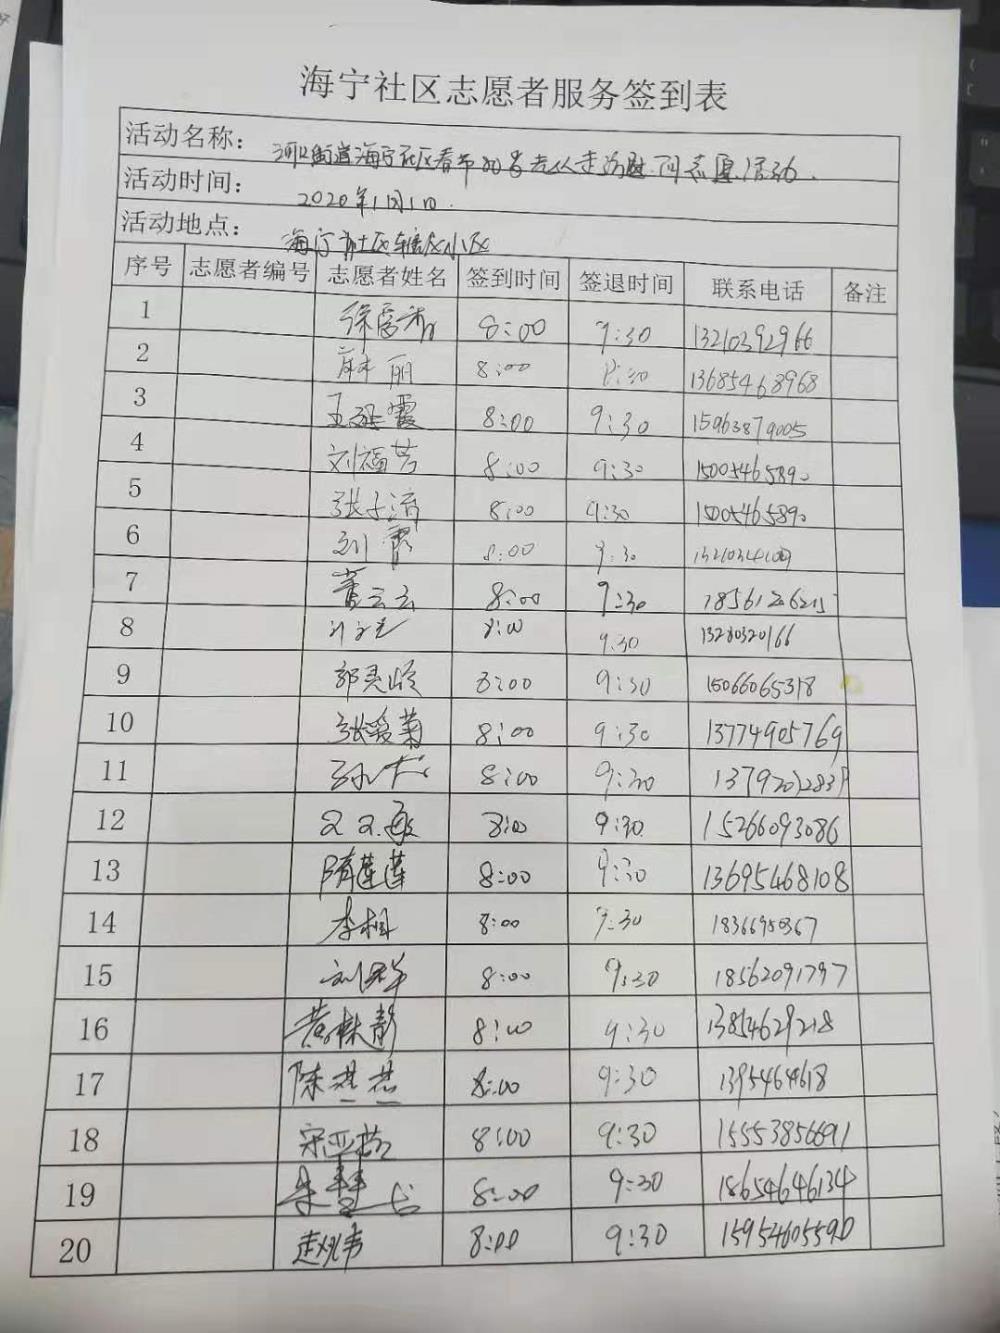 海宁社区志愿者服务签到表
活动名称: 河口街道海宁社区春节80岁老人走访慰问志愿活动.
活动时间: 2020年1月1日.
活动地点: 海宁社区辖区小区
序号 志愿者编号 志愿者姓名 签到时间 签退时间 联系电话 备注
1 8:00 9:30 13210392966
2 麻丽 8:00 13685468968
3 8:00 9:30 15963879005
4 刘福芳 8:00 9:30 15005465890
5 张子涛 8:00 9:30 15005465890
6 刘霞 8:00 9:30
7 董云云 8:00 9:30
8 8:00 9:30 13280320166
9 郭灵峻 8:00 9:30 15066065318
10 张爱菊 8:00 9:30 13774905769
11 8:00 9:30
12 敏 8:00 9:30 15266093086
13 隋莲莲 8:00 9:30 13695468108
14 李相 8:00 9:30
15 刘群 8:00 9:30 18562091797
16 静 8:00 9:30 13854629218
17 陈燕燕 8:00 9:30
18 宋亚茹 8:00 9:30 15553856691
19 朱 8:00 9:30 18654646134
20 8:00 9:30 15954605590